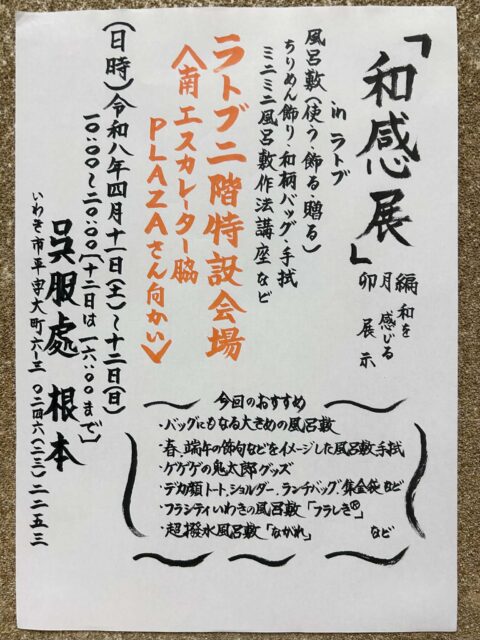 「和感展」
和を感じる展示
卯月編
inラトブ
風呂敷(使う・飾る・贈る)
ちりめん飾り・和柄バッグ・手拭
ミニミニ風呂敷作法講座など
ラトブ二階特設会場
〈南エスカレーター脇
PLAZAさん向かい〉
(日時)令和八年四月十一日(土)~十二日(日)
一〇:〇〇~二〇:〇〇〔十二日は一六:〇〇まで〕
呉服處 根本
いわき市平字大町六-三 〇二四六(二三)二二五三
今回のおすすめ
・バッグにもなる大きめの風呂敷
・春、端午の節句などをイメージした風呂敷手拭
・ゲゲゲの鬼太郎グッズ
・デカ顔トート、ショルダー、ランチバッグ、集金袋など
・フラシティいわきの風呂敷「フラしき®」
・超撥水風呂敷「ながれ」 など